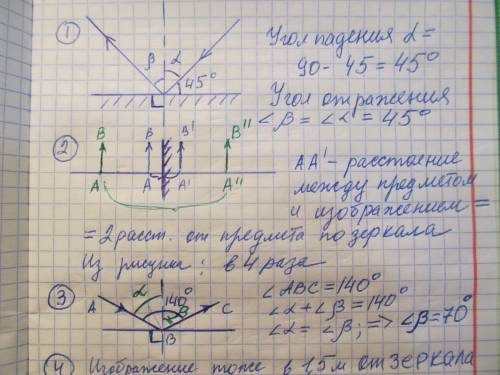 1
β α
45°
Угол падения α =
90 - 45 = 45°
Угол отражения
∠β = ∠α = 45°
2
B B B' B''
A A A' A''
AA' - расстояние
между предметом
и изображением =
= 2 расст. от предмета по зеркала
Из рисунка: в 4 раза
3
A α 140° β C
B
∠ABC = 140°
∠α + ∠β = 140°
∠α = ∠β; => ∠β = 70°
4 Изображение тоже в 1,5 м от зеркала